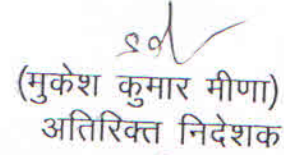 sd
(मुकेश कुमार मीणा)
अतिरिक्त निदेशक